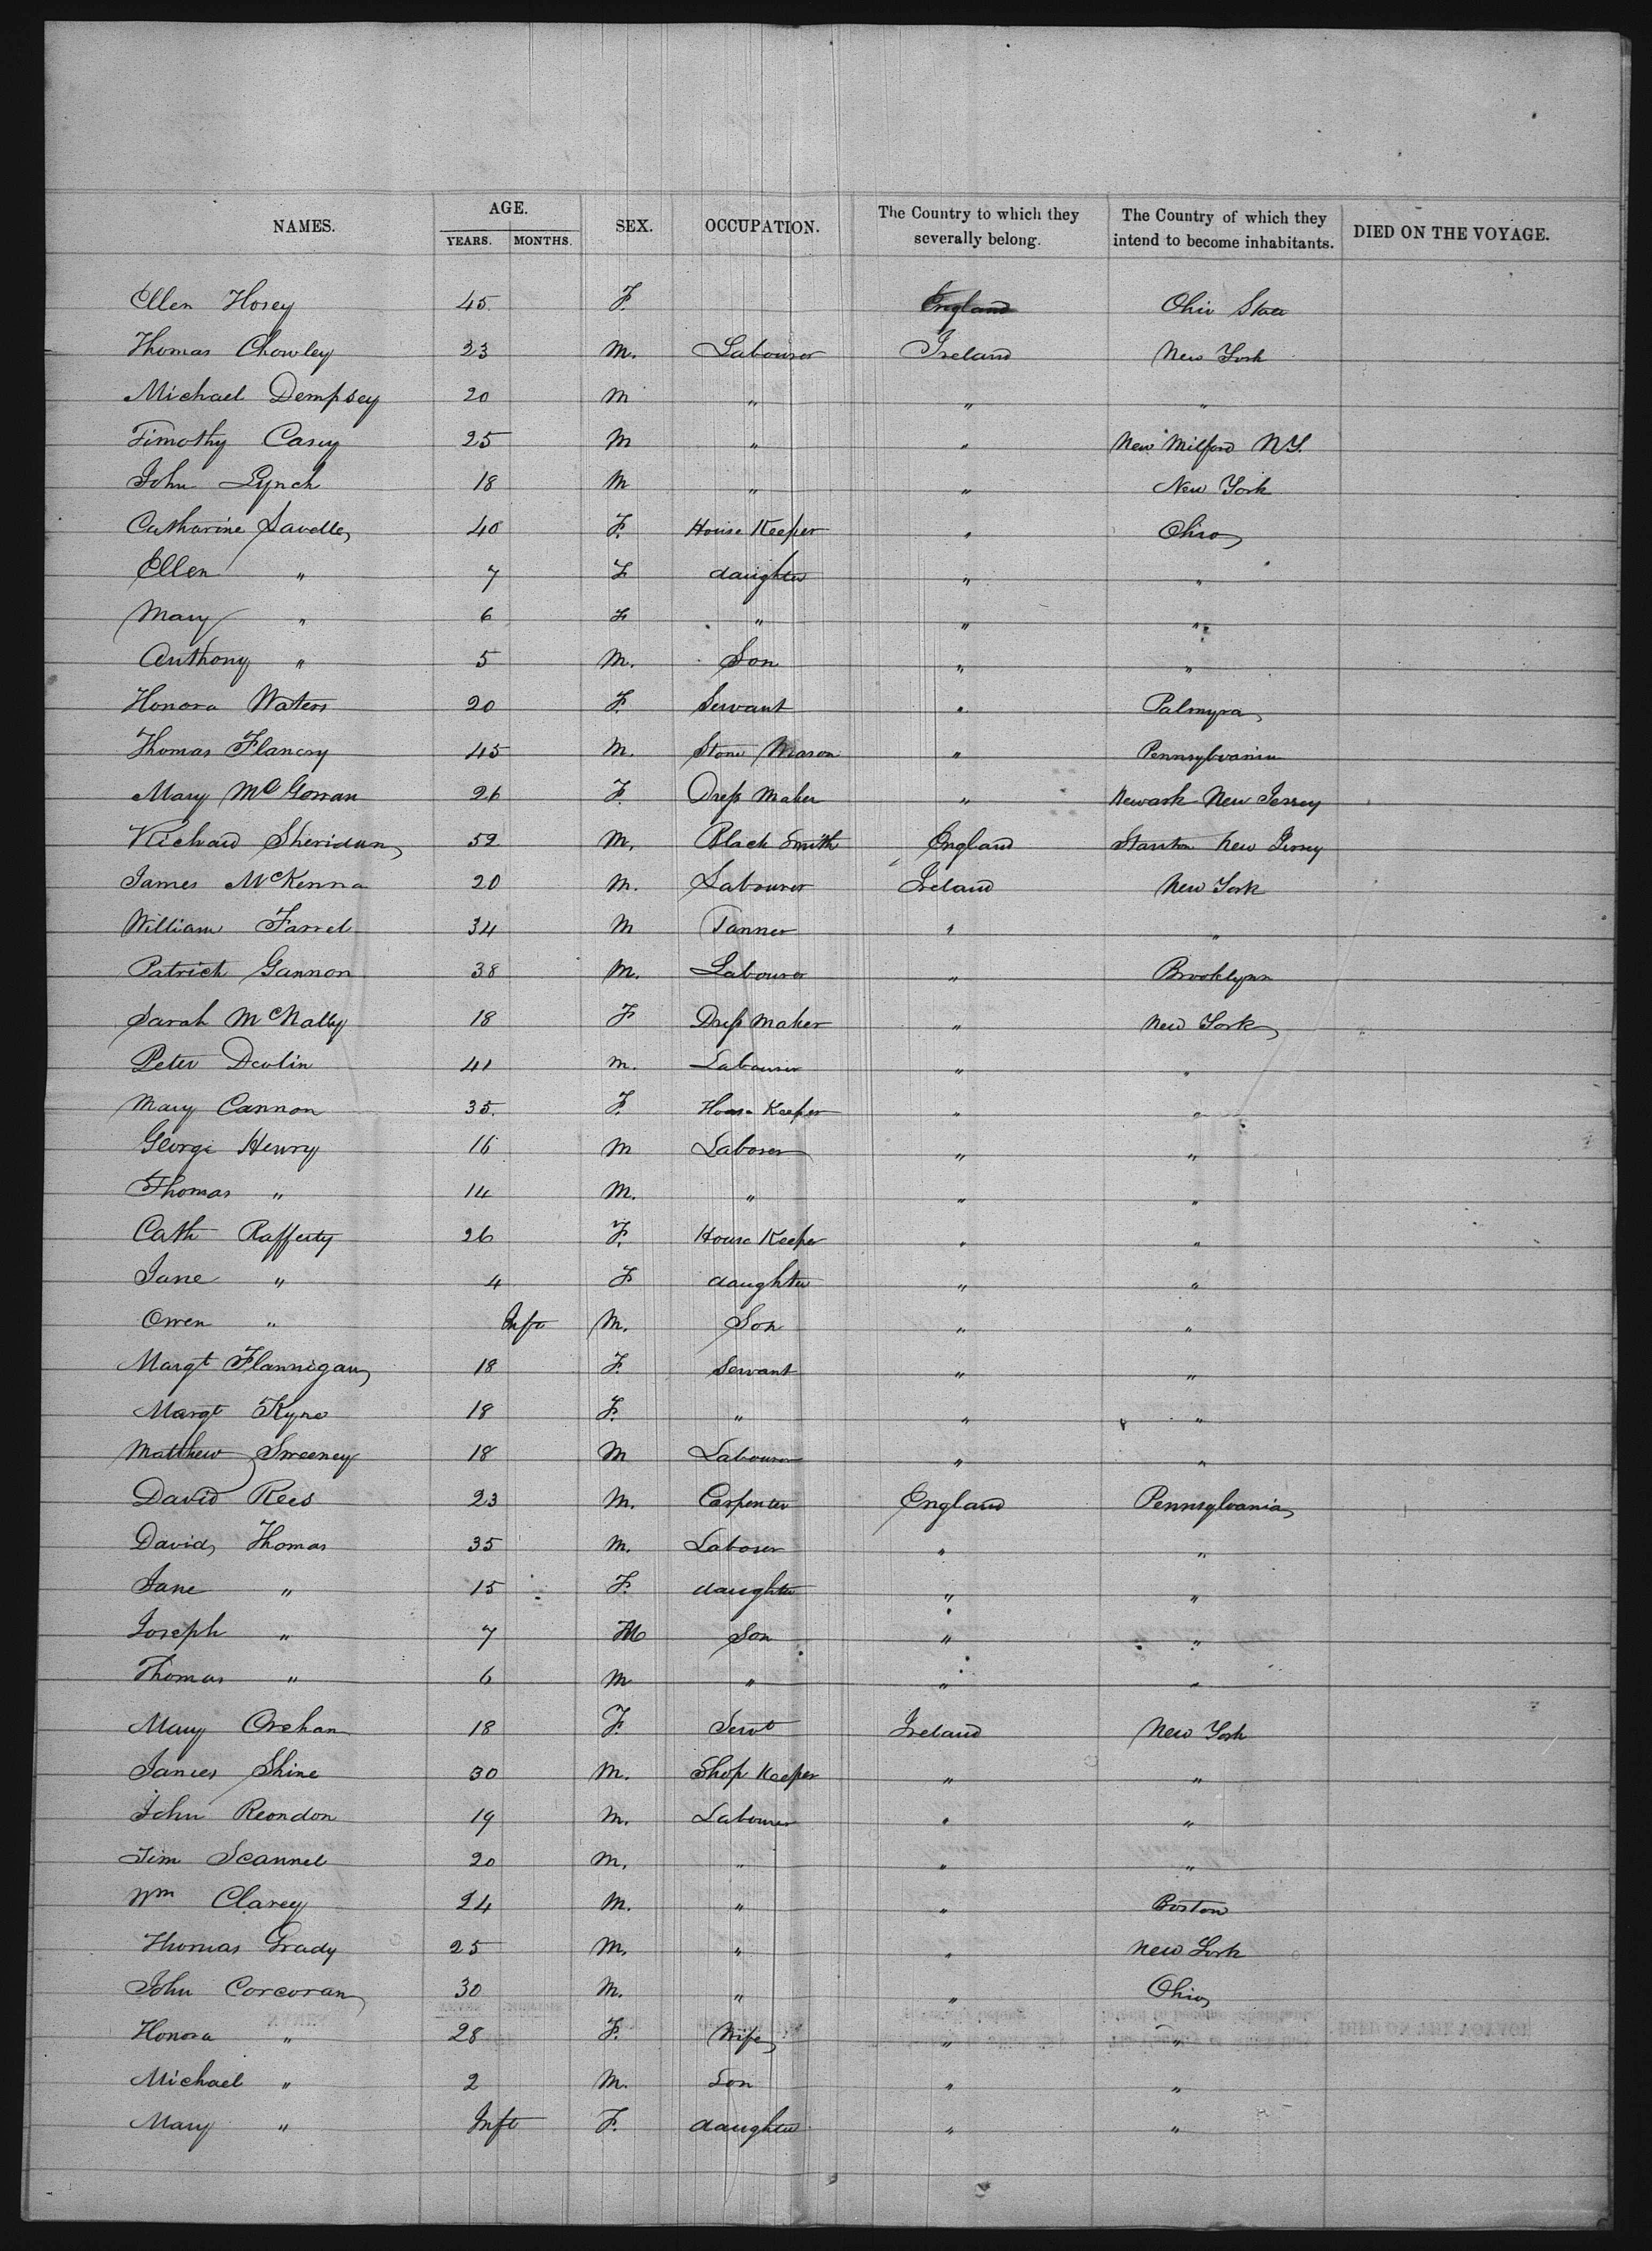 NAMES. AGE. SEX. OCCUPATION. The Country to which they severally belong. The Country of which they intend to become inhabitants. DIED ON THE VOYAGE.
YEARS. MONTHS.
Ellen Hosey 45. F. England Ohio State
Thomas Chowley 23 M. Labourer Ireland New York
Michael Dempsey 20 M " " "
Timothy Casey 25 M " " New Milford N.Y.
John Lynch 18 M " " New York
Catharine Lavelle 40 F. House Keeper " Ohio
Ellen " 7 F daughter " "
Mary " 6 F " " "
Anthony " 5 M. Son " "
Honora Waters 20 F. Servant " Palmyra
Thomas Flancry 45 M. Stone Mason " Pennsylvania
Mary McGowan 26 F. Dress Maker " Newark New Jersey
Richard Sheridan 52 M. Black Smith England New Jersey
James McKenna 20 M. Labourer Ireland New York
William Farrel 34 M Tanner " "
Patrick Gannon 38 M. Labourer " Brooklynn
Sarah McNally 18 F Dress Maker " New York
Peter Devlin 41 M. Labourer " "
Mary Cannon 35. F. House Keeper " "
George Henry 16 M Laborer " "
Thomas " 14 M. " " "
Cath Rafferty 26 F. House Keeper " "
Jane " 4 F daughter " "
Owen " Inft M. Son " "
Margt Flannigan 18 F. Servant " "
Margt Kyne 18 F. " " "
Matthew Sweeney 18 M Labourer " "
David Rees 23 M. Carpenter England Pennsylvania
David Thomas 35 M. Laborer " "
Jane " 15 F. daughter " "
Joseph " 7 M Son " "
Thomas " 6 M " " "
Mary Crehan 18 F. Servt Ireland New York
James Shine 30 M. Shop Keeper " "
John Reondon 19 M. Labourer " "
Tim Scannel 20 M. " " "
Wm Clarey 24 M. " " Boston
Thomas Grady 25 M. " " New York
John Corcoran 30 M. " " Ohio
Honora " 28 F. Wife " "
Michael " 2 M. Son " "
Mary " Inft F. daughter " "